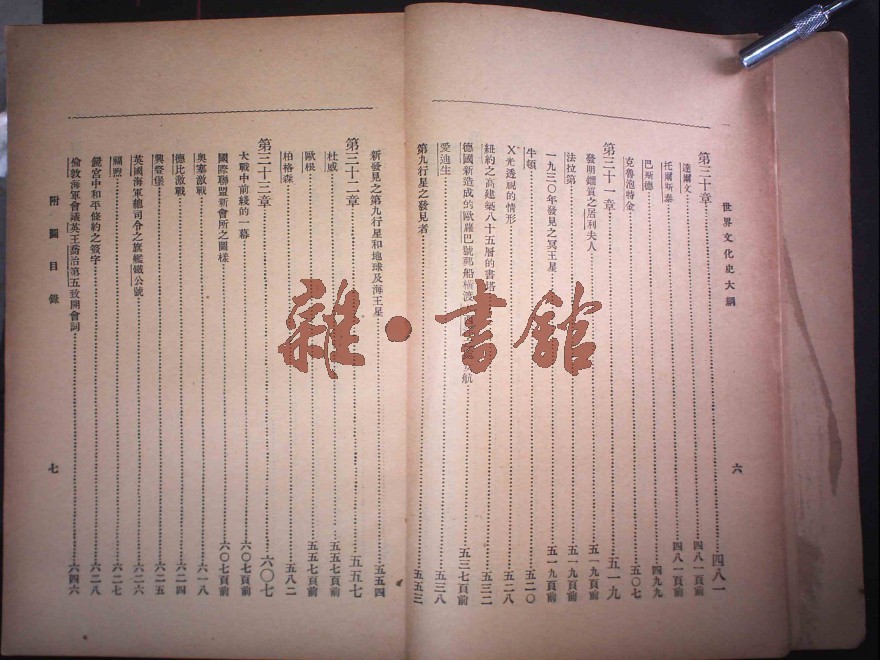 世界文化史大綱
六
第三十章 四八一
達爾文 四八一頁前
托爾斯泰 四八一頁前
巴斯德 四九九
克魯泡特金 五〇七
第三十一章 五一九
發明鐳質之居利夫人 五一九頁前
法拉第 五一九頁前
一九三〇年發見之冥王星 五一九頁前
牛頓 五二〇
X光透視的情形 五二八
紐約之高建築八十五層的書塔 五三二
德國新造成的歐羅巴號郵船橫渡 航 五三七頁前
愛迪生 五三八
第九行星之發見者 五五三
新發見之第九行星和地球及海王星 五五四
第三十二章 五五七
杜威 五五七頁前
歐根 五五七頁前
柏格森 五八二
第三十三章 六〇七
大戰中前綫的一幕 六〇七頁前
國際聯盟新會所之圖樣 六〇七頁前
奧塞激戰 六一八
德比激戰 六二四
興登堡 六二五
英國海軍總司令之旗艦鐵公號 六二六
福煦 六二七
鏡宮中和平條約之簽字 六二八
倫敦海軍會議英王喬治第五致開會詞 六四六
附圖目錄
七
雜·書館